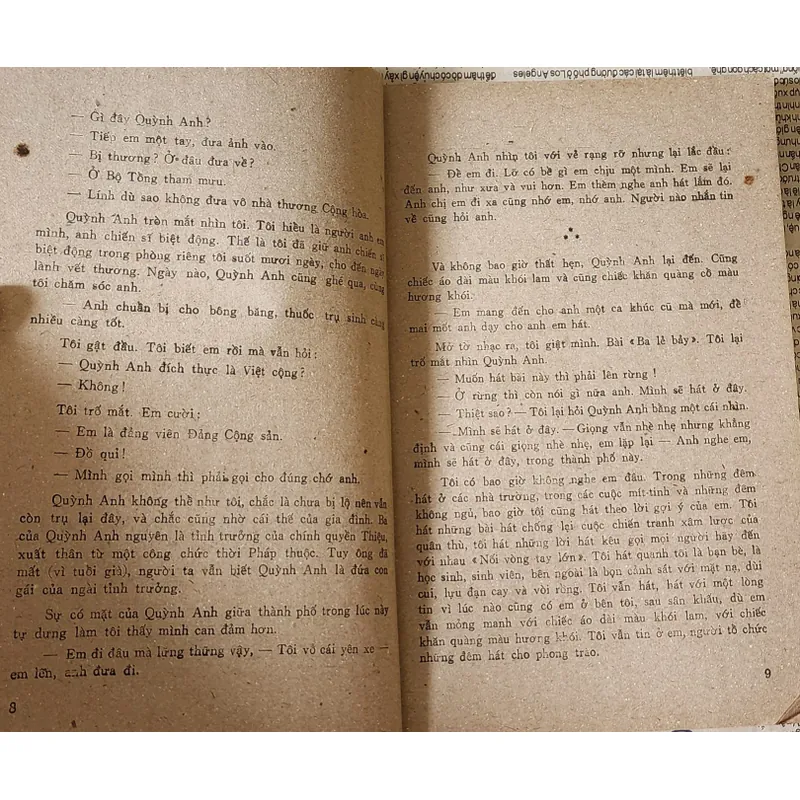 — Gì đây Quỳnh Anh?
— Tiếp em một tay, đưa ảnh vào.
— Bị thương? Ở đâu đưa về?
— Ở Bộ Tổng tham mưu.
— Lính dù sao không đưa vô nhà thương Cộng hòa.
Quỳnh Anh tròn mắt nhìn tôi. Tôi hiểu là người anh em
mình, anh chiến sĩ biệt động. Thế là tôi đã giữ anh chiến sĩ
biệt động trong phòng riêng tôi suốt mươi ngày, cho đến ngày
lành vết thương. Ngày nào, Quỳnh Anh cũng ghé qua, cùng
tôi chăm sóc anh.
— Anh chuẩn bị cho bông băng, thuốc trụ sinh càng
nhiều càng tốt.
Tôi gật đầu. Tôi biết em rồi mà vẫn hỏi:
— Quỳnh Anh đích thực là Việt cộng?
— Không!
Tôi trố mắt. Em cười:
— Em là đảng viên Đảng Cộng sản.
— Đồ quỉ!
— Mình gọi mình thì phải gọi cho đúng chớ anh.
Quỳnh Anh không thể như tôi, chắc là chưa bị lộ nên vẫn
còn trụ lại đây, và chắc cũng nhờ cái thế của gia đình. Ba
của Quỳnh Anh nguyên là tỉnh trưởng của chính quyền Thiệu,
xuất thân từ một công chức thời Pháp thuộc. Tuy ông đã
mất (vì tuổi già), người ta vẫn biết Quỳnh Anh là đứa con
gái của ngài tỉnh trưởng.
Sự có mặt của Quỳnh Anh giữa thành phố trong lúc này
tự dưng làm tôi thấy mình can đảm hơn.
— Em đi đâu mà lững thững vậy, — Tôi vỗ cái yên xe —
em lên, anh đưa đi.
8
Quỳnh Anh nhìn tôi với vẻ rạng rỡ nhưng lại lắc đầu:
— Để em đi. Lỡ có bề gì em chịu một mình. Em sẽ lại
đến anh, như xưa và vui hơn. Em thèm nghe anh hát lắm đó.
Anh chị em đi xa cũng nhớ em, nhớ anh. Người nào nhắn tin
về cũng hỏi anh.
Và không bao giờ thất hẹn, Quỳnh Anh lại đến. Cũng
chiếc áo dài màu khói lam và cũng chiếc khăn quàng cổ màu
hương khói.
— Em mang đến cho anh một ca khúc cũ mà mới, để
mai mốt anh dạy cho anh em hát.
Mở tờ nhạc ra, tôi giật mình. Bài «Ba lê bảy». Tôi lại
trố mắt nhìn Quỳnh Anh.
— Muốn hát bài này thì phải lên rừng!
— Ở rừng thì còn nói gì nữa anh. Mình sẽ hát ở đây.
— Thiệt sao? — Tôi lại hỏi Quỳnh Anh bằng một cái nhìn.
— Mình sẽ hát ở đây. — Giọng vẫn nhè nhẹ nhưng khẳng
định và cũng cái giọng nhè nhẹ, em lặp lại — Anh nghe em,
mình sẽ hát ở đây, trong thành phố này.
Tôi có bao giờ không nghe em đâu. Trong những đêm
hát ở các nhà trường, trong các cuộc mít-tinh và những đêm
không ngủ, bao giờ tôi cũng hát theo lời gợi ý của em. Tôi
hát những bài hát chống lại cuộc chiến tranh xâm lược của
quân thù, tôi hát những lời kêu gọi mọi người hãy đến
với nhau «Nối vòng tay lớn». Tôi hát quanh tôi là bạn bè, là
học sinh, sinh viên, bên ngoài là bọn cảnh sát với mặt nạ, dùi
cui, lựu đạn cay và vòi rồng. Tôi vẫn hát, hát với một lòng
tin vì lúc nào cũng có em ở bên tôi, sau sân khấu, dù em
vẫn mỏng manh với chiếc áo dài màu khói lam, với chiếc
khăn quàng màu hương khói. Tôi vẫn tin ở em, người tổ chức
những đêm hát cho phong trào.
9
biết thêm là tại các đường phố ở Los Angeles